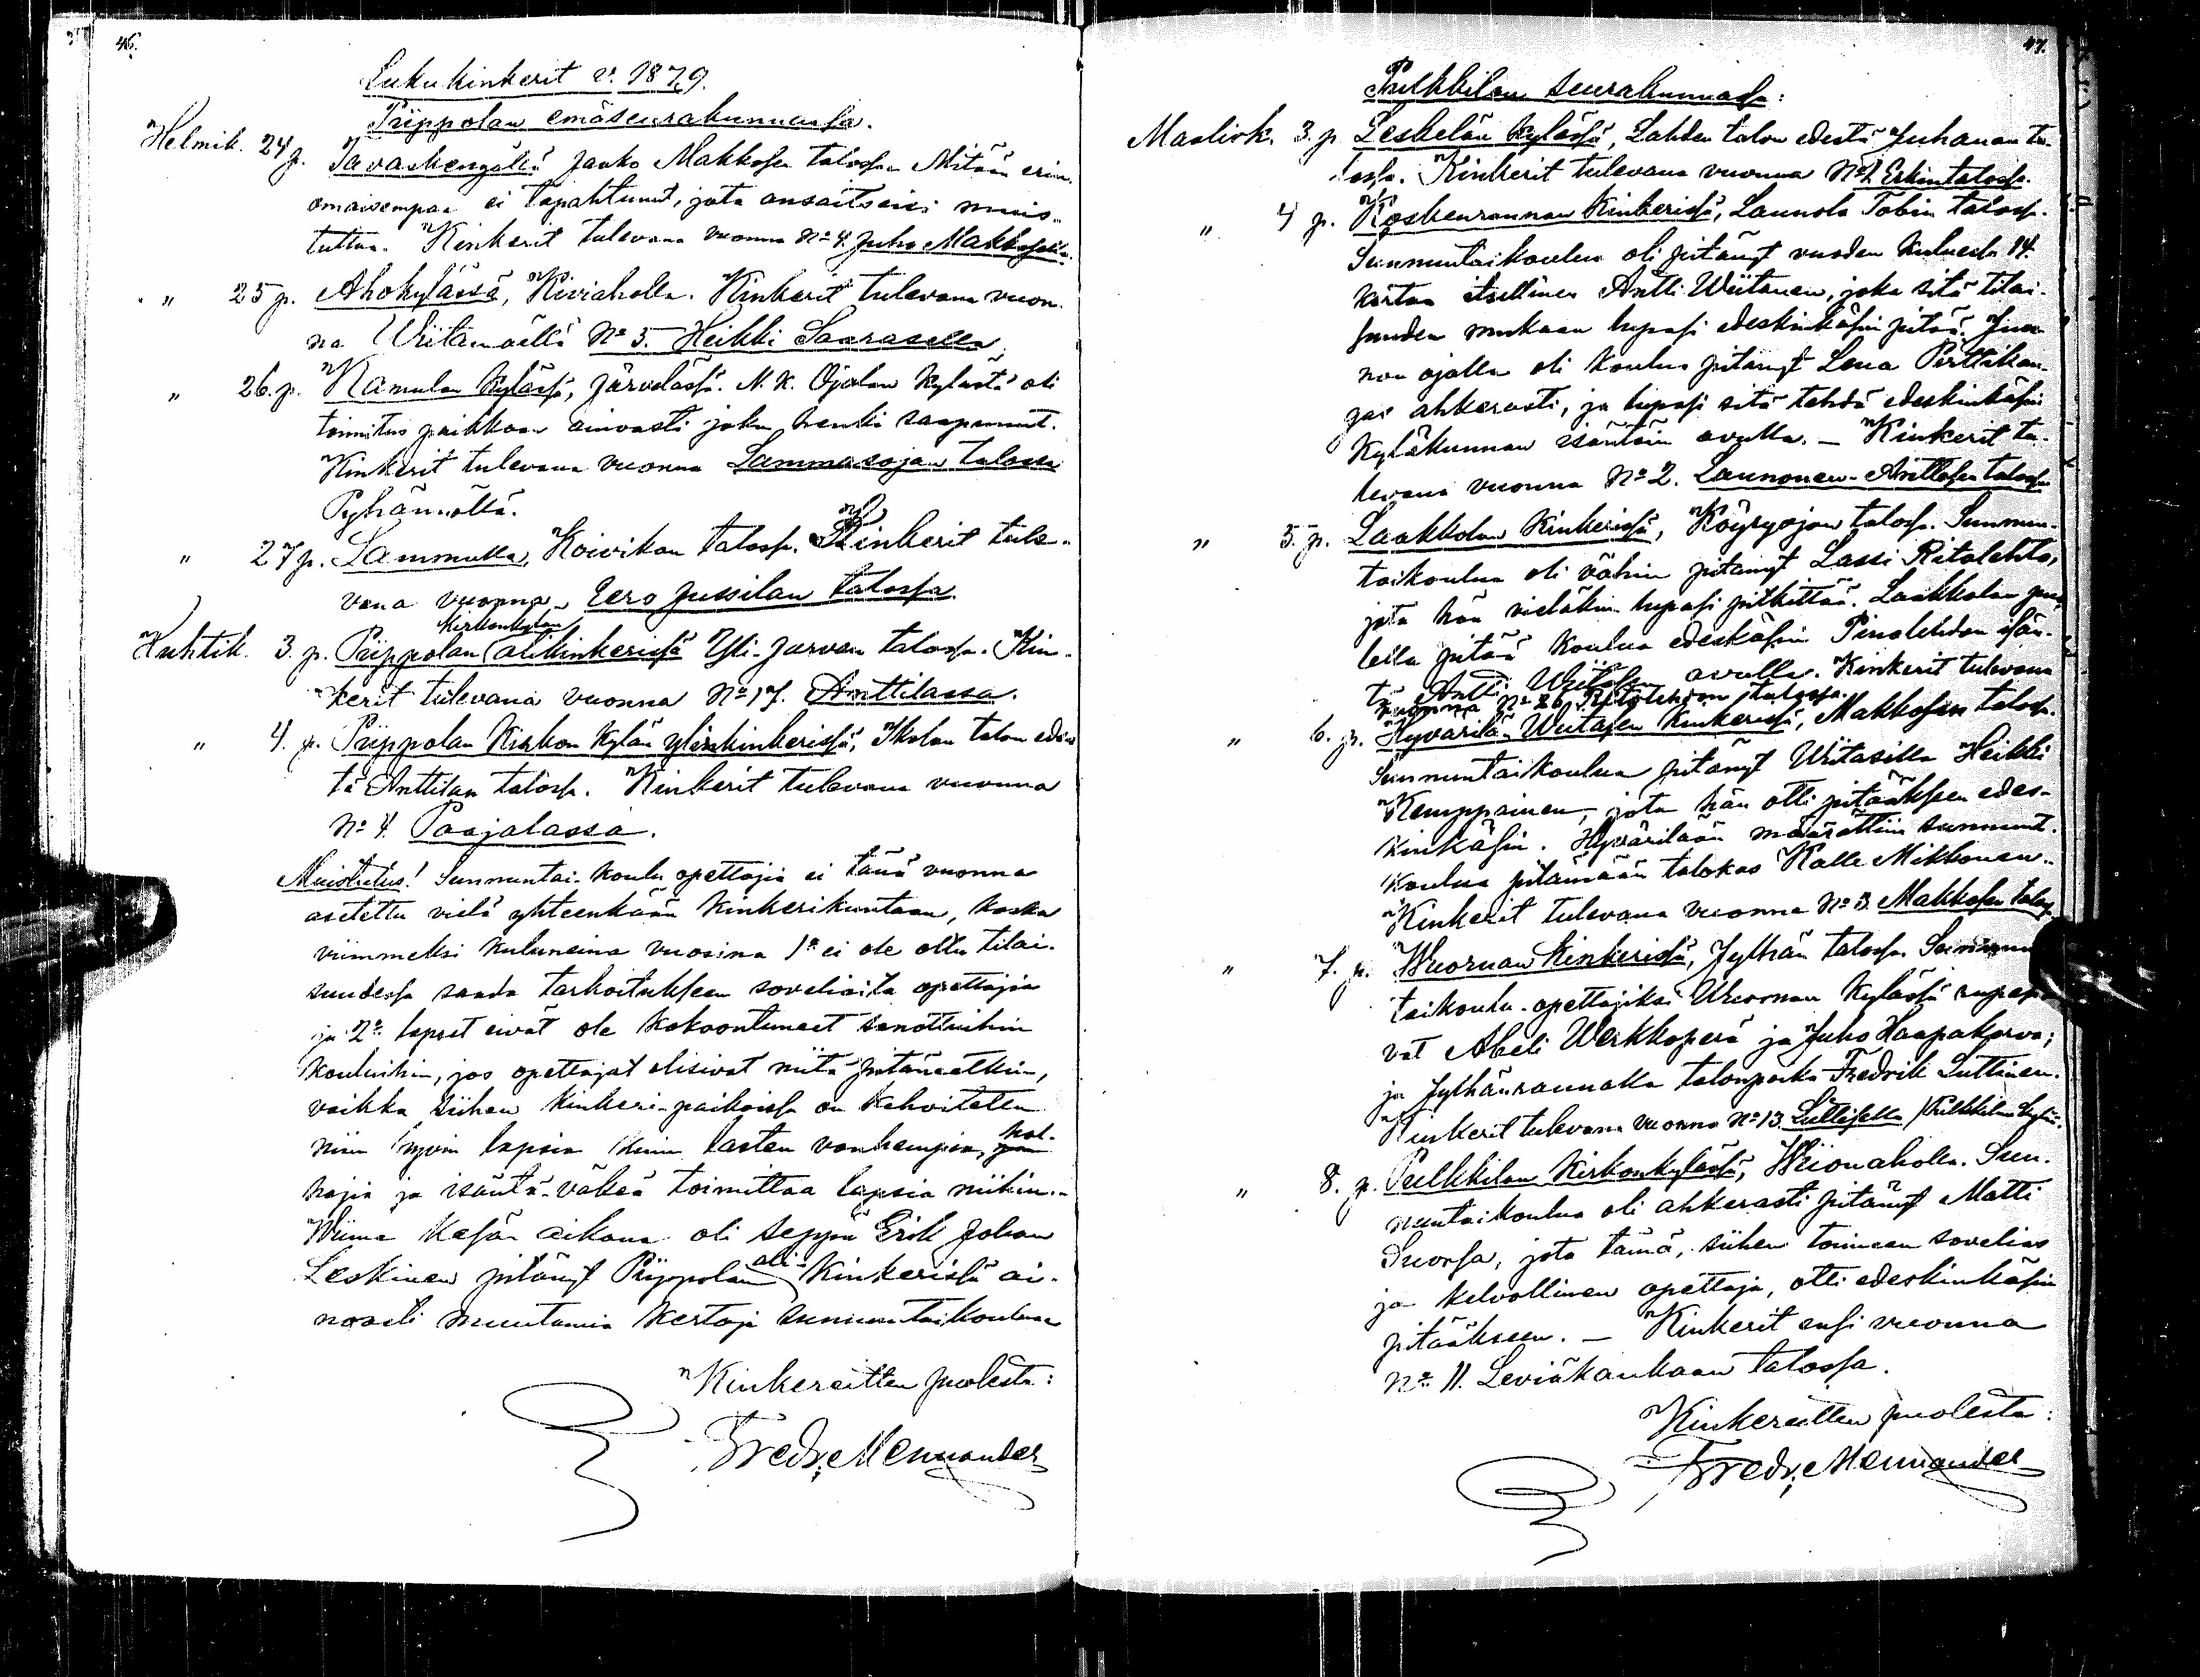 46.
Lukukinkerit v. 1879.
Piippolan emäseurakunnassa.
Helmik. 24 p. Tavastkengällä Jaako Makkosen talossa. Mitään erin-
omaisempaa ei tapahtunut, jota ansaitseisi muis-
tuttaa. Kinkerit tulevana vuonna No 4. Juho Makkosella.
" 25 p. Ahokylässä, Kiviaholla. Kinkerit tulevana vuon-
na Wiitamäellä No 5. Heikki Saarasella.
" 26. p. Kamulan kylässä, Järvelässä. N. K. Ojalan kylästä oli
toimitus paikkaan ainoasti joku henki saapunut.
Kinkerit tulevana vuonna Lammasojan talossa
Pyhännällä.
" 27 p. Lammulla, Koivikon talossa. Kinkerit tule-
vana vuonna Eero Jussilan talossa.
kirkonkylän
Huhtik. 3. p. Piippolan alikinkerissä Yli-Jarvan talossa. Kin-
kerit tulevana vuonna No 17. Anttilassa.
" 4. p. Piippolan Kirkon kylän ylikinkerissä, Ikolan talon edes-
tä Anttilan talossa. Kinkerit tulevana vuonna
No 4. Paajalassa.
Muistutus! Sunnuntai-koulu opettajia ei tänä vuonna
asetettu vielä yhteenkään Kinkerikuntaan, koska
viimmeksi kuluneina vuosina 1o ei ole ollu tilai-
suudessa saada tarkoitukseen soveliaita opettajia
ja 2o lapset eivät ole kokoontuneet sanottuihin
kouluihin, jos opettajat olisivat niitä pitäneetkin,
vaikka siihen kinkeri-paikoissa on kehoitettu
niin hyvin lapsia kuin lasten vanhempia, hol-
hojia ja isäntä-väkeä toimittaa lapsia niihin.-
Wiime kesän aikana oli seppä Erik Johan
Leskinen pitänyt Piippolan ali-Kinkerissä ai-
noasti muutamia kertoja sunnuntaikoulua
Kinkereitten puolesta:
Fredr. Mennander
47.
Pulkkilan seurakunnassa:
Maalisk. 3. p. Leskelän kylässä, Lahden talon edestä Juhanan ta-
lossa. Kinkerit tulevana vuonna No 1. Erkintalossa.
" 4 p. Koskenrannan Kinkerissä, Launola Tobin talossa.
Sunnuntaikoulua oli pitänyt vuoden kuluessa 14.
kertaa itsellinen Antti Wiitanen, joka sitä tilai-
suuden mukaan lupasi edeskinkäsin pitää. Juu-
non ojalla oli koulua pitänyt Lena Perttikan-
gas ahkerasti, ja lupasi sitä tehdä edeskinkäsin
Kyläkunnan isäntäin avulla. — Kinkerit tu-
levana vuonna No 2. Launonen-Anttosen talossa
" 5. p. Laakkolan Kinkerissä, Köyryojan talossa. Sunnun-
taikoulua oli vähin pitänyt Lassi Ritolehto,
jota hän vieläkin lupasi pitkittää. Laakkolan puo-
lella pitää koulua edeskäsin Pinolehdon isän-
tä Antti Wiitasen avulla. Kinkerit tulevana
vuonna No 26 Ritolehdon talossa.
" 6. p. Hyvärilä-Wiitasen Kinkerissä, Makkosen talossa.
Sunnuntaikoulua pitänyt Wiitasilla Heikki
Kemppainen, jota hän otti pitääkseen edes-
kinkäsin. Hyvärilään määrättiin sunnunt.
koulua pitämään talokas Kalle Mikkonen.
Kinkerit tulevana vuonna No 3. Makkosen talos.
" 7. p. Wuornan Kinkerissä, Jylhän talossa. Sunnun
taikoulu-opettajiksi Wuornan kylässä rupesi-
vat Abeli Werkkoperä ja Juho Haapakorva;
ja Jylhänrannalla talonpoika Fredrik Luttinen.
Kinkerit tulevana vuonna No 13. Luttisella /Pulkkilan kylä.
" 8. p. Pulkkilan Kirkonkylässä, Wuonaholla. Sun-
nuntaikoulua oli ahkerasti pitänyt Matti
Suorsa, jota tämä, siihen toimeen sovelias
ja kelvollinen opettaja, otti edeskinkäsin
pitääkseen. — Kinkerit ensi vuonna
No 11. Leviäkankaan talossa.
Kinkereitten puolesta:
Fredr. Mennander